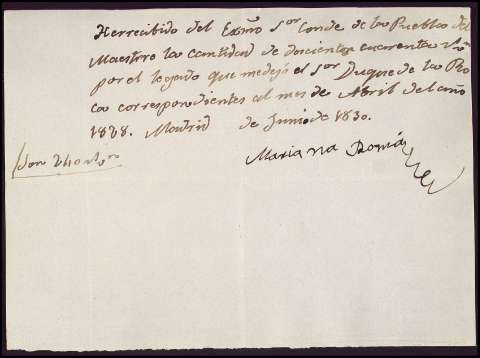 He rrecibido del Exmo Sor Conde de la Puebla del
Maestre la cantidad de doscientos cuarenta rs vn
por el legado que me dejó el Sor Duque de la Ro
ca correspondientes al mes de Abril del año
1828. Madrid de Junio de 1830.
Son 240 rs vn
Mariana Román